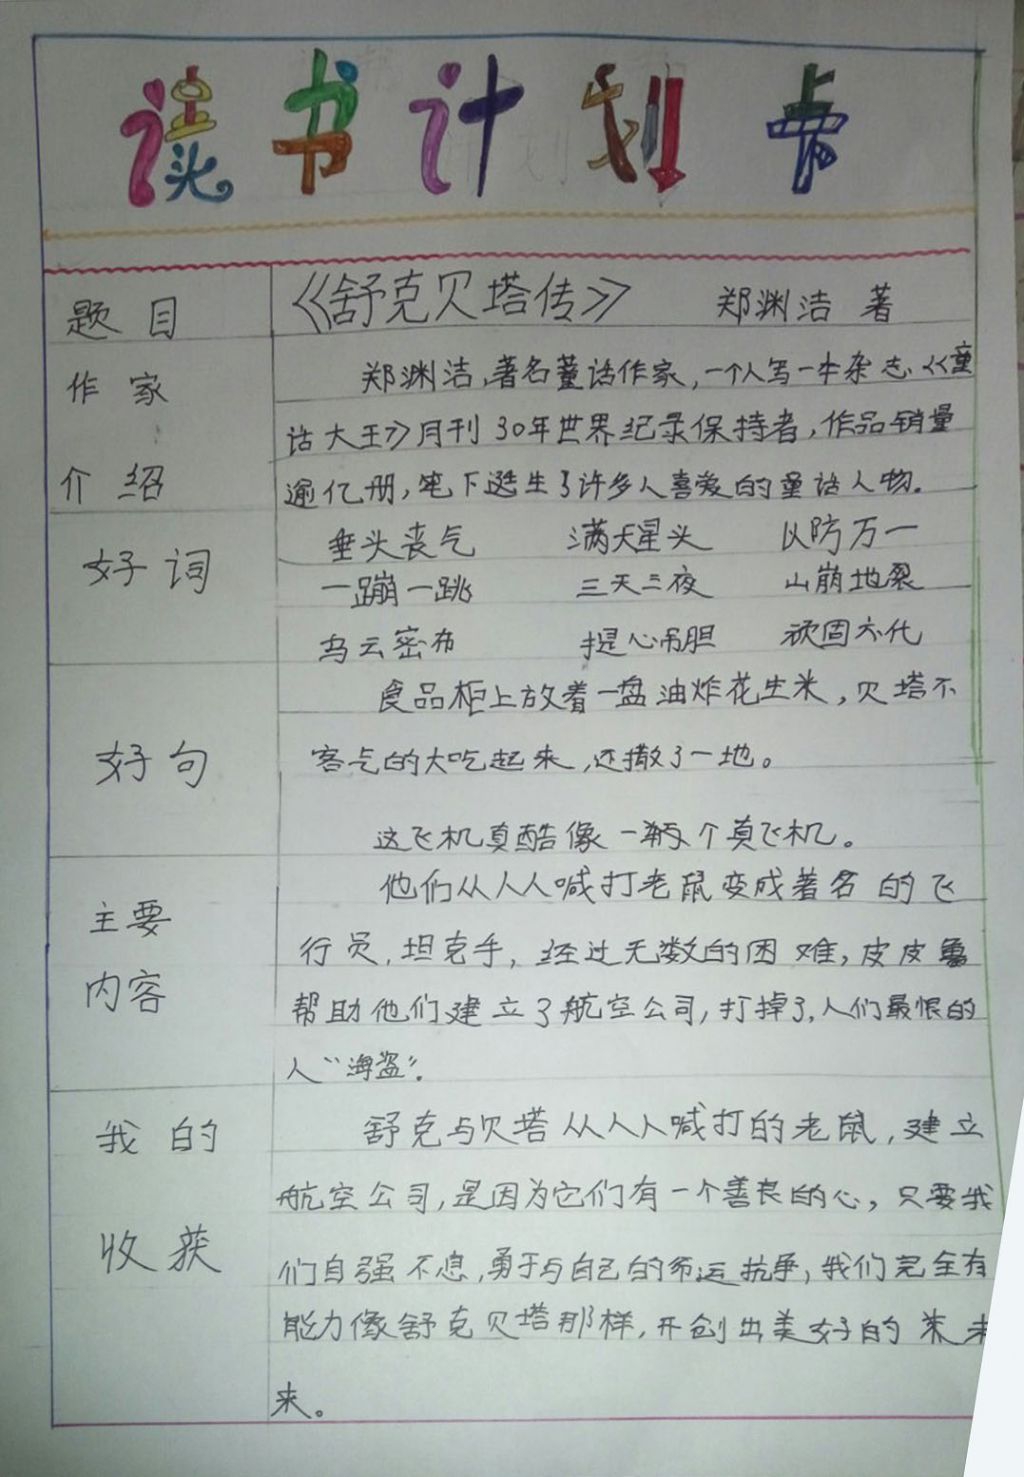 读书计划卡
题目 《舒克贝塔传》 郑渊洁 著
作家 郑渊洁,著名童话作家,一个人写一本杂志《童
话大王》月刊30年世界纪录保持者,作品销量
介绍 逾亿册,笔下诞生了许多人喜爱的童话人物.
好词 垂头丧气 满天星头 以防万一
一蹦一跳 三天三夜 山崩地裂
乌云密布 提心吊胆 顽固不化
食品柜上放着一盘油炸花生米,贝塔不
好句 客气的大吃起来,还撒了一地。
这飞机真酷像一个真飞机。
他们从人人喊打老鼠变成著名的飞
主要 行员,坦克手,经过无数的困难,皮皮鲁
内容 帮助他们建立了航空公司,打掉了,人们最恨的
人“海盗”.
我的 舒克与贝塔从人人喊打的老鼠,建立
航空公司,是因为它们有一个善良的心,只要我
收获 们自强不息,勇于与自己的命运抗争,我们完全有
能力像舒克贝塔那样,开创出美好的未
来。